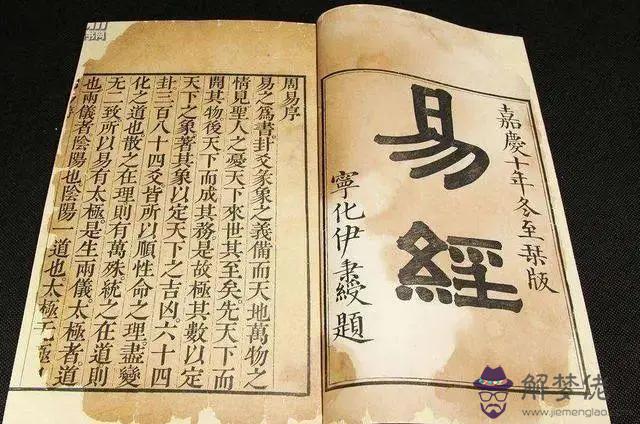 嘉慶十年冬至栞版
易經
寧化伊秉綬題
周易序
易之爲書卦爻彖象之義備而天地萬物之
情見聖人之憂天下來世其至矣。先天下而
開其物後天下而成其務。是故極其數以定
天下之象著其象以定天下之吉凶六十四
卦三百八十四爻皆所以順性命之理。盡變
化之道也散之在理則有萬殊。統之在道則
无一致所以易有太極。是生兩儀。太極者道
也兩儀者陰陽也陰陽一道也太極无極
解梦佬
www.jiemenglao.com